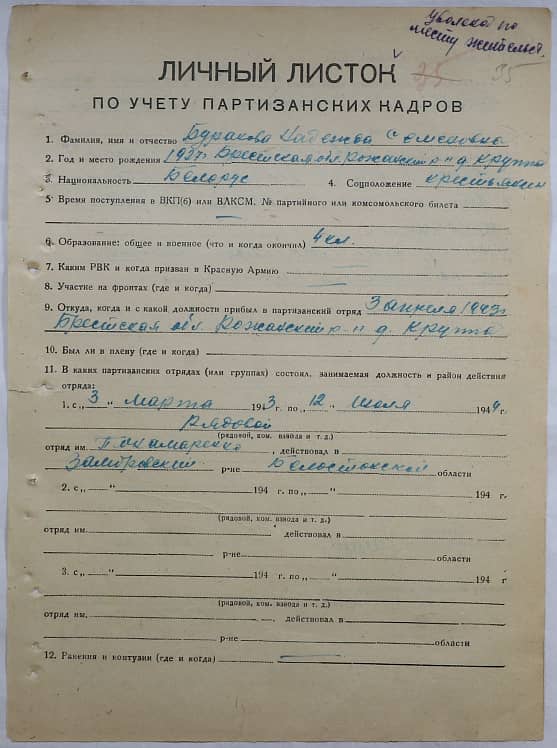 Убыла по
месту жительст.
35
ЛИЧНЫЙ ЛИСТОК
ПО УЧЕТУ ПАРТИЗАНСКИХ КАДРОВ
1. Фамилия, имя и отчество Буракова Надежда Семеновна
2. Год и место рождения 1927г Брестская обл. р-н д. Круппа
3. Национальность Белорус 4. Соцположение крестьянин
5. Время поступления в ВКП(б) или ВЛКСМ, № партийного или комсомольского билета
6. Образование: общее и военное (что и когда окончил) 4 кл.
7. Каким РВК и когда призван в Красную Армию
8. Участие на фронтах (где и когда)
9. Откуда, когда и с какой должности прибыл в партизанский отряд 3 апреля 1943г
Брестская обл. р-н д. Круппа
10. Был ли в плену (где и когда)
11. В каких партизанских отрядах (или группах) состоял, занимаемая должность и район действия
отряда:
1. с „3“ марта 1943 г. по „12“ июля 1944 г.
Рядовой
(рядовой, ком. взвода и т. д.)
отряд им. Пономаренко, действовал в
р-не Белостокской области
2. с „ “ 194 г. по „ “ 194 г.
(рядовой, ком. взвода и т. д.)
отряд им. действовал в
р-не области
3. с „ “ 194 г. по „ “ 194 г
(рядовой, ком. взвода и т. д.)
отряд им. , действовал в
р-не области
12. Ранения и контузии (где и когда)